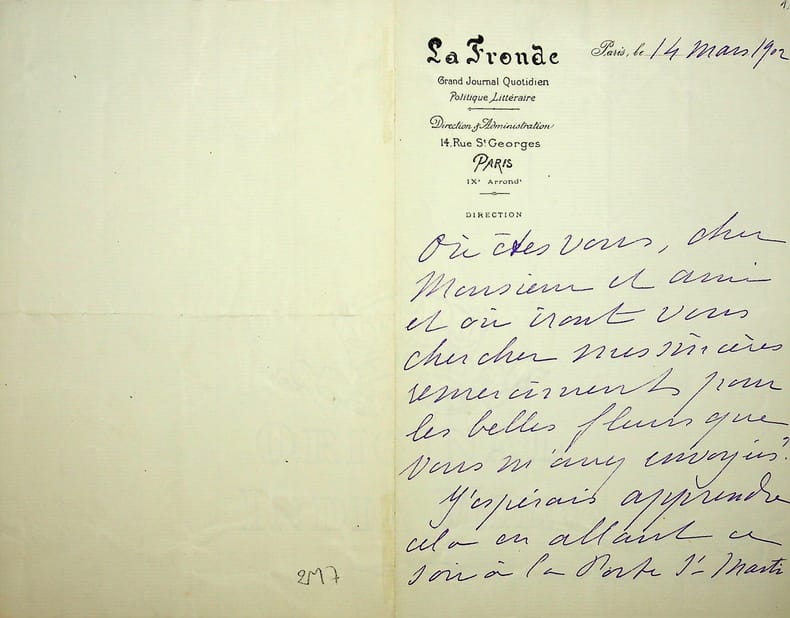 1.
La Fronde
Grand Journal Quotidien
Politique Littéraire
Direction & Administration
14, Rue St Georges
PARIS
IXe Arrondt
DIRECTION
Paris, le 14 mars 1902
Où êtes vous, cher
Monsieur et ami
et où iront vous
chercher mes sincères
remerciments pour
les belles fleurs que
vous m'avez envoyées?
J'espérais apprendre
cela en allant ce
soir à la Porte St Martin
2M7